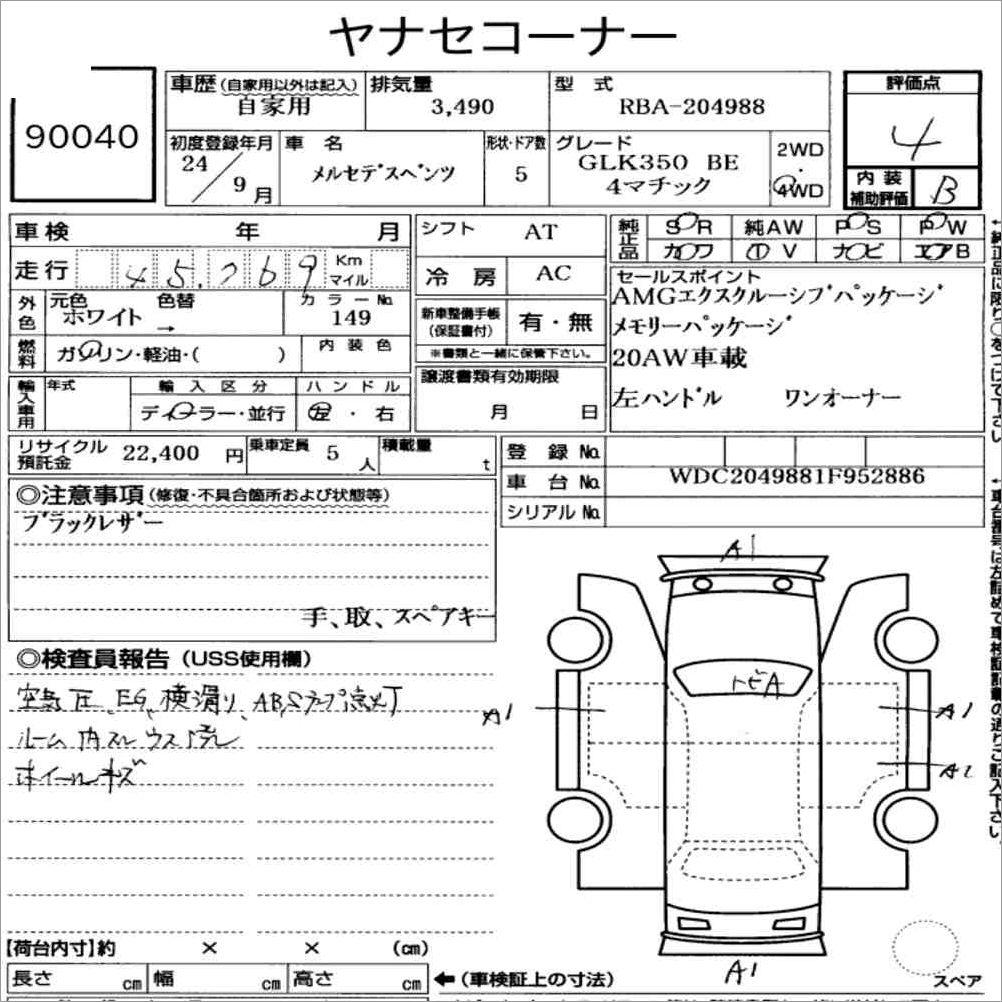 ヤナセコーナー
90040
車歴(自家用以外は記入) 自家用
排気量 3,490
型 式 RBA-204988
評価点 4
初度登録年月 24/9月
車 名 メルセデスベンツ
形状・ドア数 5
グレード GLK350 BE
4マチック
2WD
4WD
内装補助評価 B
車検 年 月
走行 45,769 Km マイル
外色 元色 ホワイト 色替 → カラーNo 149
燃料 ガソリン・軽油・( ) 内装色
輸入車用 年式 輸入区分 ディーラー・並行 ハンドル 左・右
シフト AT
冷 房 AC
新車整備手帳(保証書付) 有・無
※書類と一緒に保管下さい。
譲渡書類有効期限
月 日
純正品 SR 純AW PS PW
カワ TV ナビ エアB
セールスポイント
AMGエクスクルーシブパッケージ
メモリーパッケージ
20AW車載
左ハンドル ワンオーナー
リサイクル預託金 22,400 円 乗車定員 5人 積載量 t
登 録 No
車 台 No WDC2049881F952886
シリアル No
◎注意事項(修復・不具合箇所および状態等)
ブラックレザー
手、取、スペアキー
◎検査員報告(USS使用欄)
空気圧、EG、横滑り、ABSランプ点灯
ルーム内スレ ウス汚レ
ホイールキズ
A1
トビA
A1
A1
A1
A1
←純正品に限り○をつけて下さい
←車台番号は左詰めで車検証記載の通りご記入下さい。
【荷台内寸】約 × × (cm)
長さ cm 幅 cm 高さ cm ←(車検証上の寸法)
スペア